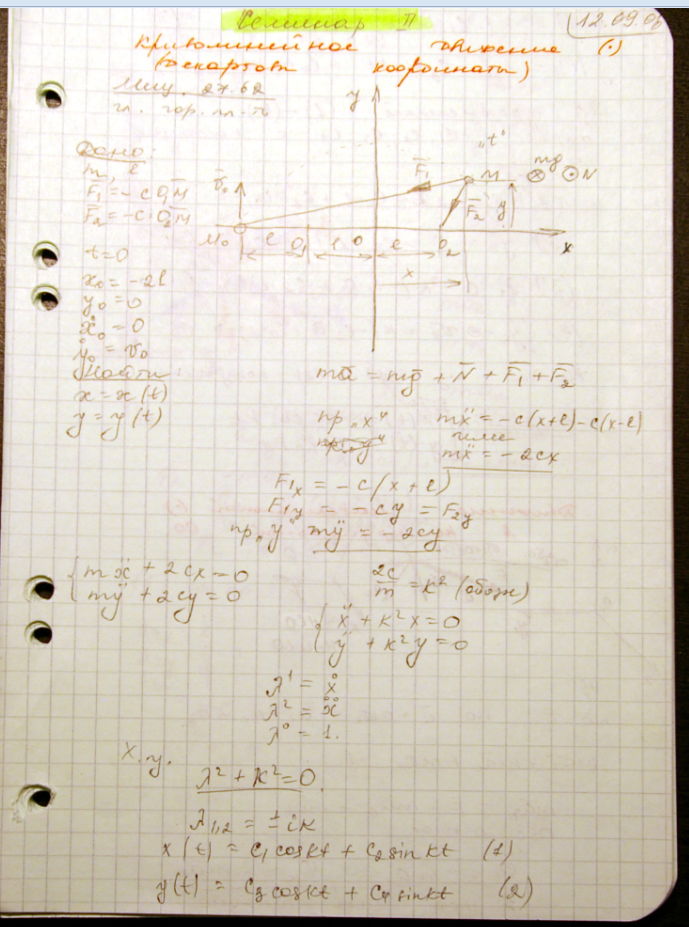 Семинар II
12.09.06
Криволинейное движение (·)
(декартовы координаты)
Мещ. 27.62
гл. гор. пл-ть
Дано:
m, l
F̄₁ = -c O₁M̄
F̄₂ = -c O₂M̄
t=0
x₀ = -2l
y₀ = 0
ẋ₀ = 0
ẏ₀ = v₀
Найти
x = x(t)
y = y(t)
y
„t"
v̄₀
F̄₁
M
mg
N
F̄₂
y
M₀
l
O₁
l
O
l
O₂
x
x
mā = mḡ + N̄ + F̄₁ + F̄₂
пр „x" mẍ = -c(x+l) - c(x-l)
или
mẍ = -2cx
F₁x = -c(x+l)
F₁y = -cy = F₂y
пр „y" mÿ = -2cy
{ mẍ + 2cx = 0
mÿ + 2cy = 0
2c/m = k² (обозн)
{ ẍ + k²x = 0
ÿ + k²y = 0
λ¹ = ẋ
λ² = ẍ
λ⁰ = 1.
х.у.
λ² + k² = 0.
λ₁,₂ = ± ik
x(t) = C₁ cos kt + C₂ sin kt (1)
y(t) = C₃ cos kt + C₄ sin kt (2)